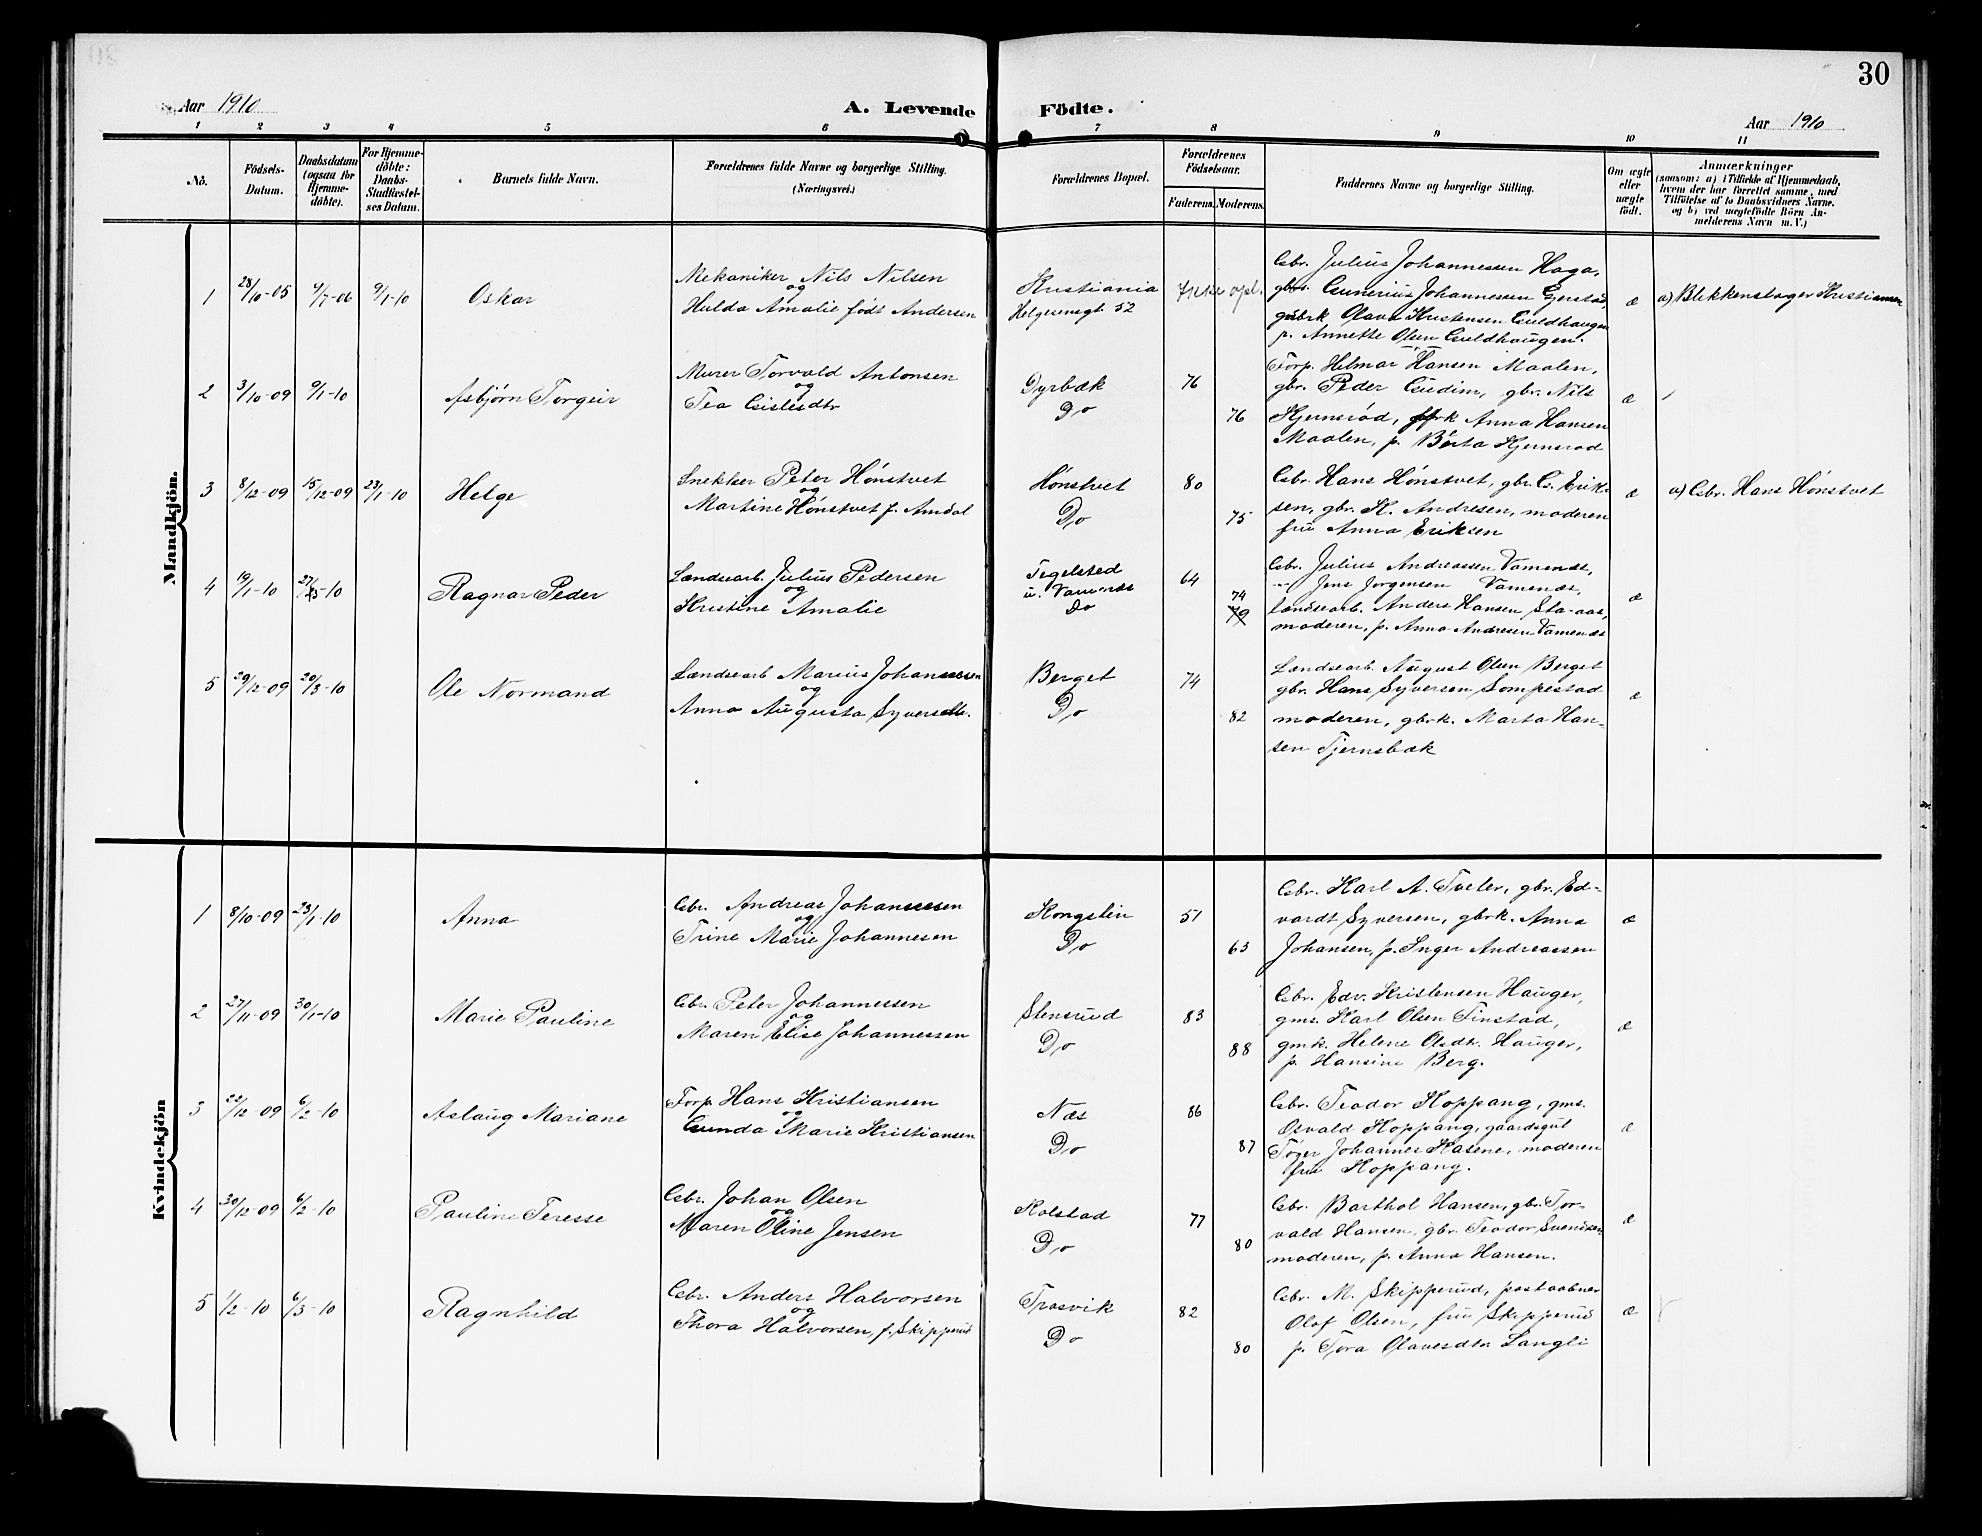 30
Aar 1910
A. Levende Födte.
Aar 1910
1 2 3 4 5 6 7 8 9 10 11
Nô.
Födsels-
Datum.
Daabsdatum
(ogsaa for
Hjemme-
döbte).
For Hjemme-
döbte:
Daabs-
Stadfæstel-
ses Datum.
Barnets fulde Navn.
Forældrenes fulde Navne og borgerlige Stilling.
(Næringsvei.)
Forældrenes Bopæl.
Forældrenes
Födselsaar.
Faderens. Moderens.
Faddernes Navne og borgerlige Stilling.
Om ægte
eller
uægte
født.
Anmærkninger
(saasom: a) i Tilfælde af Hjemmedaab,
hvem der har forrettet samme, med
Tilföielse af to Daabsvidners Navne.
og b) ved uægtefödte Börn An-
melderens Navn m. V.)
Mandkjön.
1 28/10-05 4/7-06 9/1-10 Oskar
Mekaniker Nils Nilsen
og
Hulda Amalie født Andersen
Kristiania
Helgesensgt 52
Ikke opl.
Gbr. Julius Johannessen Haga,
gbr. Gunerius Johannessen Gjerstad,
gbrk Olava Kristensen Guldhaugen
p. Annette Olsen Guldhaugen.
æ
a) Blikkenslager Kristiansen
2 3/10-09 9/1-10 Asbjørn Torgeir
Murer Torvald Antonsen
og
Tea Gislesdtr
Dyrbæk
Do
76
76
Forp. Helmar Hansen Maalen,
gbr. Peder Gudim, gbr. Nils
Kjernsrød, frk Anna Hansen
Maalen, p. Börta Kjernsrod
æ
3 8/12-09 15/12-09 23/1-10 Helge
Snekker Peter Hønstvet
og
Martine Hønstvet f. Amdal
Hønstvet
Do
80
75
Gbr. Hans Hønstvet, gbr. G. Erik-
sen, gbr. K. Andresen, moderen
fru Anna Eriksen
æ
a) Gbr. Hans Hønstvet
4 19/1-10 27/3-10 Ragnar Peder
Lændsearb. Julius Pedersen
og
Kristine Amalie
Tegelsted
u. Vamenæs
Do
64
74
79
Gbr. Julius Andreassen Vamenæs,
-"- Jens Jørgensen Vamenæs,
Lændsearb. Anders Hansen Sta-aas,
moderen, p. Anna Andresen Vamenæs
æ
5 29/12-09 20/3-10 Ole Normand
Lændsearb Marius Johannessen
og
Anna Augusta Syversdtr.
Berget
Do
74
82
Lændsearb. August Olsen Berget
gbr. Hans Syversen Sompestad
moderen, gbrk. Marta Han-
sen Tjernsbæk
æ
Kvindekjön
1 8/10-09 23/1-10 Anna
Gbr. Andreas Johannessen
og
Trine Marie Johannesen
Kongslin
Do
51
63
Gbr. Karl A. Tveter, gbr. Ed-
vardt Syversen, gbrk. Anna
Johansen, p. Inger Andreassen
æ
2 27/11-09 30/1-10 Marie Pauline
Gbr. Peter Johannessen
og
Maren Elise Johannessen
Stensrud
Do
83
88
Gbr. Edv. Kristensen Hauger,
gms. Karl Olsen Finstad,
gmk. Helene Olsdtr. Hauger,
p. Hansine Berg.
æ
3 22/12-09 6/2-10 Aslaug Mariane
Forp. Hans Kristiansen
og
Gunda Marie Kristiansen
Næs
Do
86
87
Gbr. Teodor Hoppang, gms.
Osvald Hoppang, gaardsgut
Tøger Johannes Hasene, moderen
fru Hoppang.
æ
4 30/12-09 6/2-10 Pauline Teresse
Gbr. Johan Olsen
og
Maren Oline Jensen
Kolstad
Do
77
80
Gbr. Barthol Hansen, gbr. Tor-
vald Hansen, gbr. Teodor Svendsen
moderen, p. Anna Hansen.
æ
5 1/2-10 6/3-10 Ragnhild
Gbr. Anders Halvorsen
og
Thora Halvorsen, f. Skipperud
Trosvik
Do
82
80
Gbr. M. Skipperud, postaabner
Olaf Olsen, fru Skipperud
p. Tora Olavesdtr Langli
æ